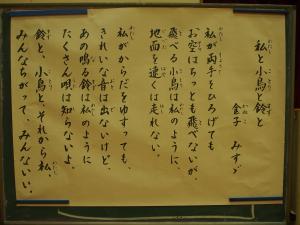 私と小鳥と鈴と
金子 みすゞ
私が両手をひろげても
お空はちっとも飛べないが、
飛べる小鳥は私のように、
地面を速くは走れない。
私がからだをゆすっても、
きれいな音は出ないけど、
あの鳴る鈴は私のように
たくさん唄は知らないよ。
鈴と、小鳥と、それから私、
みんなちがって、みんないい。